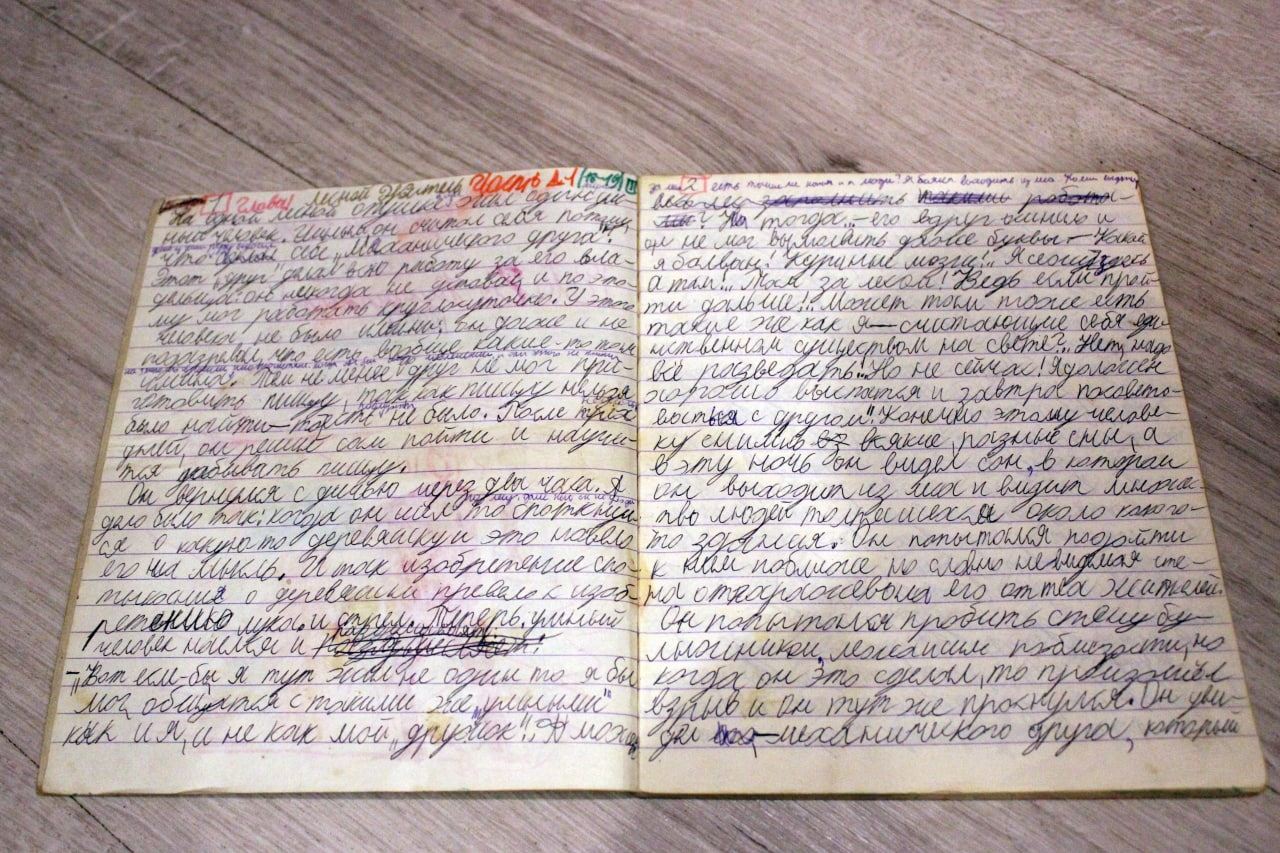 1 Глава 1 Лесной житель Часть Д-1 (18-19)
На одной лесной опушке жил один ум-
ный человек. Умным он считал себя потому,
что себе „Механического друга".
Этот „друг" делал всю работу за его вла-
дельца: он никогда не уставал и по это-
му мог работать круглосуточно. У этого
человека не было имени: он даже и не
подозревал, что есть вообще какие-то там
имена. Тем не менее „друг" не мог при-
готовить пищу, так как пищу нельзя
было найти - просто не было. После трёх
дней, он решил сам пойти и научи-
тся добывать пищу.
Он вернулся с дичью через два часа. А
дело было так: когда он шёл то споткнул-
ся о какую-то деревяшку и это навело
его на мысль. И так изобретение спо-
тыкания о деревяшки превело к изоб-
ретению лука и стрел. Теперь умный
человек наелся и
- „Вот если-бы я тут жил не один то я бы
мог общатся с такими же „умными"
как и я, и не как мой „дружок"!
2 есть точно такие как и я люди? Я боялся выходить из леса.
заполнить такими
? На тогда... - его вдруг осинило и
он не мог вымолвить даже буквы - Какой
я болван! Куриные мозги!.. Я сейчас здесь
а там!.. Там за лесом! Ведь если прой-
ти дальше!.. Может там тоже есть
такие же как я — считающие себя еди-
нственным существом на свете?.. Нет, надо
всё разведать!.. Но не сейчас! Я должен
хорошо выспатся и завтра посовето-
ваться с другом". Конечно этому челове-
ку снились всякие разные сны, а
в эту ночь он видел сон, в котором
он выходит из леса и видит множе-
тво людей толпяшехся около какого-
то здания. Он попытался подойти
к ним поближе но словно невидимая сте-
на отгараживала его от тех жителей.
Он попытался пробить стену бу-
лыжником, лежащим поблизости, но
когда он это сделал, то произошёл
взрыв и он тут же проснулся. Он уви-
дел механического друга, который